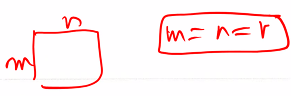 n
m
m = n = r